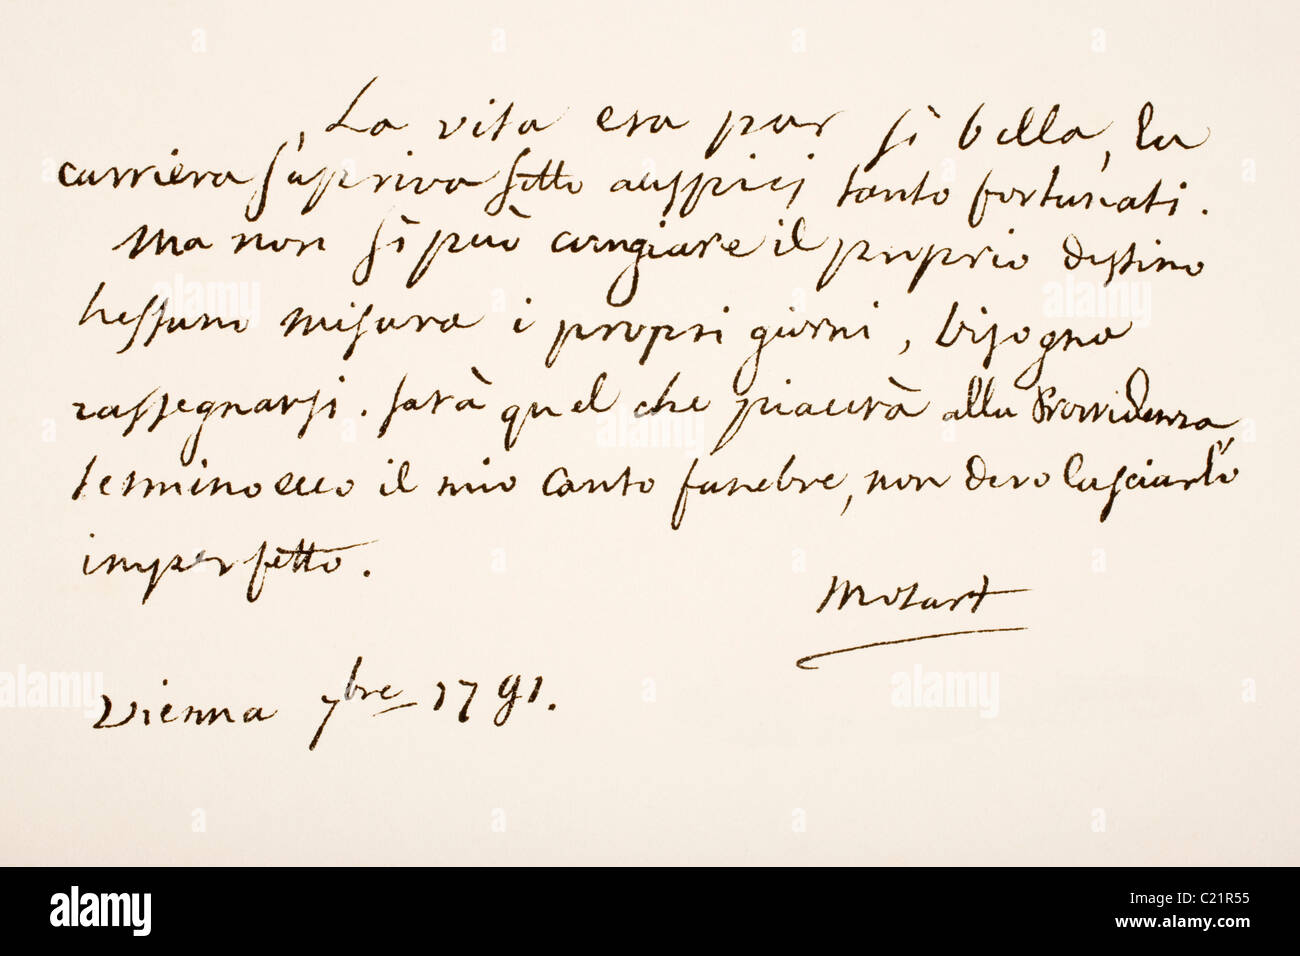 La vita era pur sì bella, la
carriera s'apriva sotto auspici tanto fortunati.
Ma non si può cangiare il proprio destino
Nessuno misura i propri giorni, bisogna
rassegnarsi. sarà quel che piacerà alla Providenza
termino ecco il mio canto funebre, non devo lasciarlo
imperfetto.
Mozart
Vienna 7bre 1791.
alamy
Image ID: C21R55
www.alamy.com